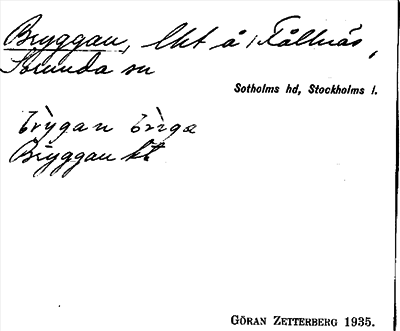 Bryggan, lht å Fållnäs,
Sorunda sn
Sotholms hd, Stockholms l.
brỳgan brìgæ
Bryggan kt
GÖRAN ZETTERBERG 1935.